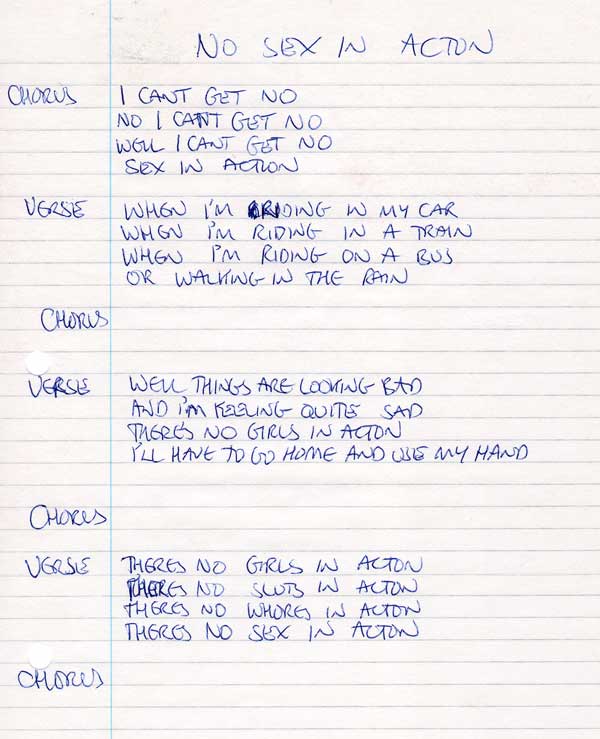 NO SEX IN ACTON
CHORUS I CANT GET NO
NO I CANT GET NO
WELL I CANT GET NO
SEX IN ACTION
VERSE WHEN I'M RIDING IN MY CAR
WHEN I'M RIDING IN A TRAIN
WHEN I'M RIDING ON A BUS
OR WALKING IN THE RAIN
CHORUS
VERSE WELL THINGS ARE LOOKING BAD
AND I'M FEELING QUITE SAD
THERES NO GIRLS IN ACTON
I'LL HAVE TO GO HOME AND USE MY HAND
CHORUS
VERSE THERES NO GIRLS IN ACTON
THERES NO SLUTS IN ACTON
THERES NO WHORES IN ACTON
THERES NO SEX IN ACTON
CHORUS